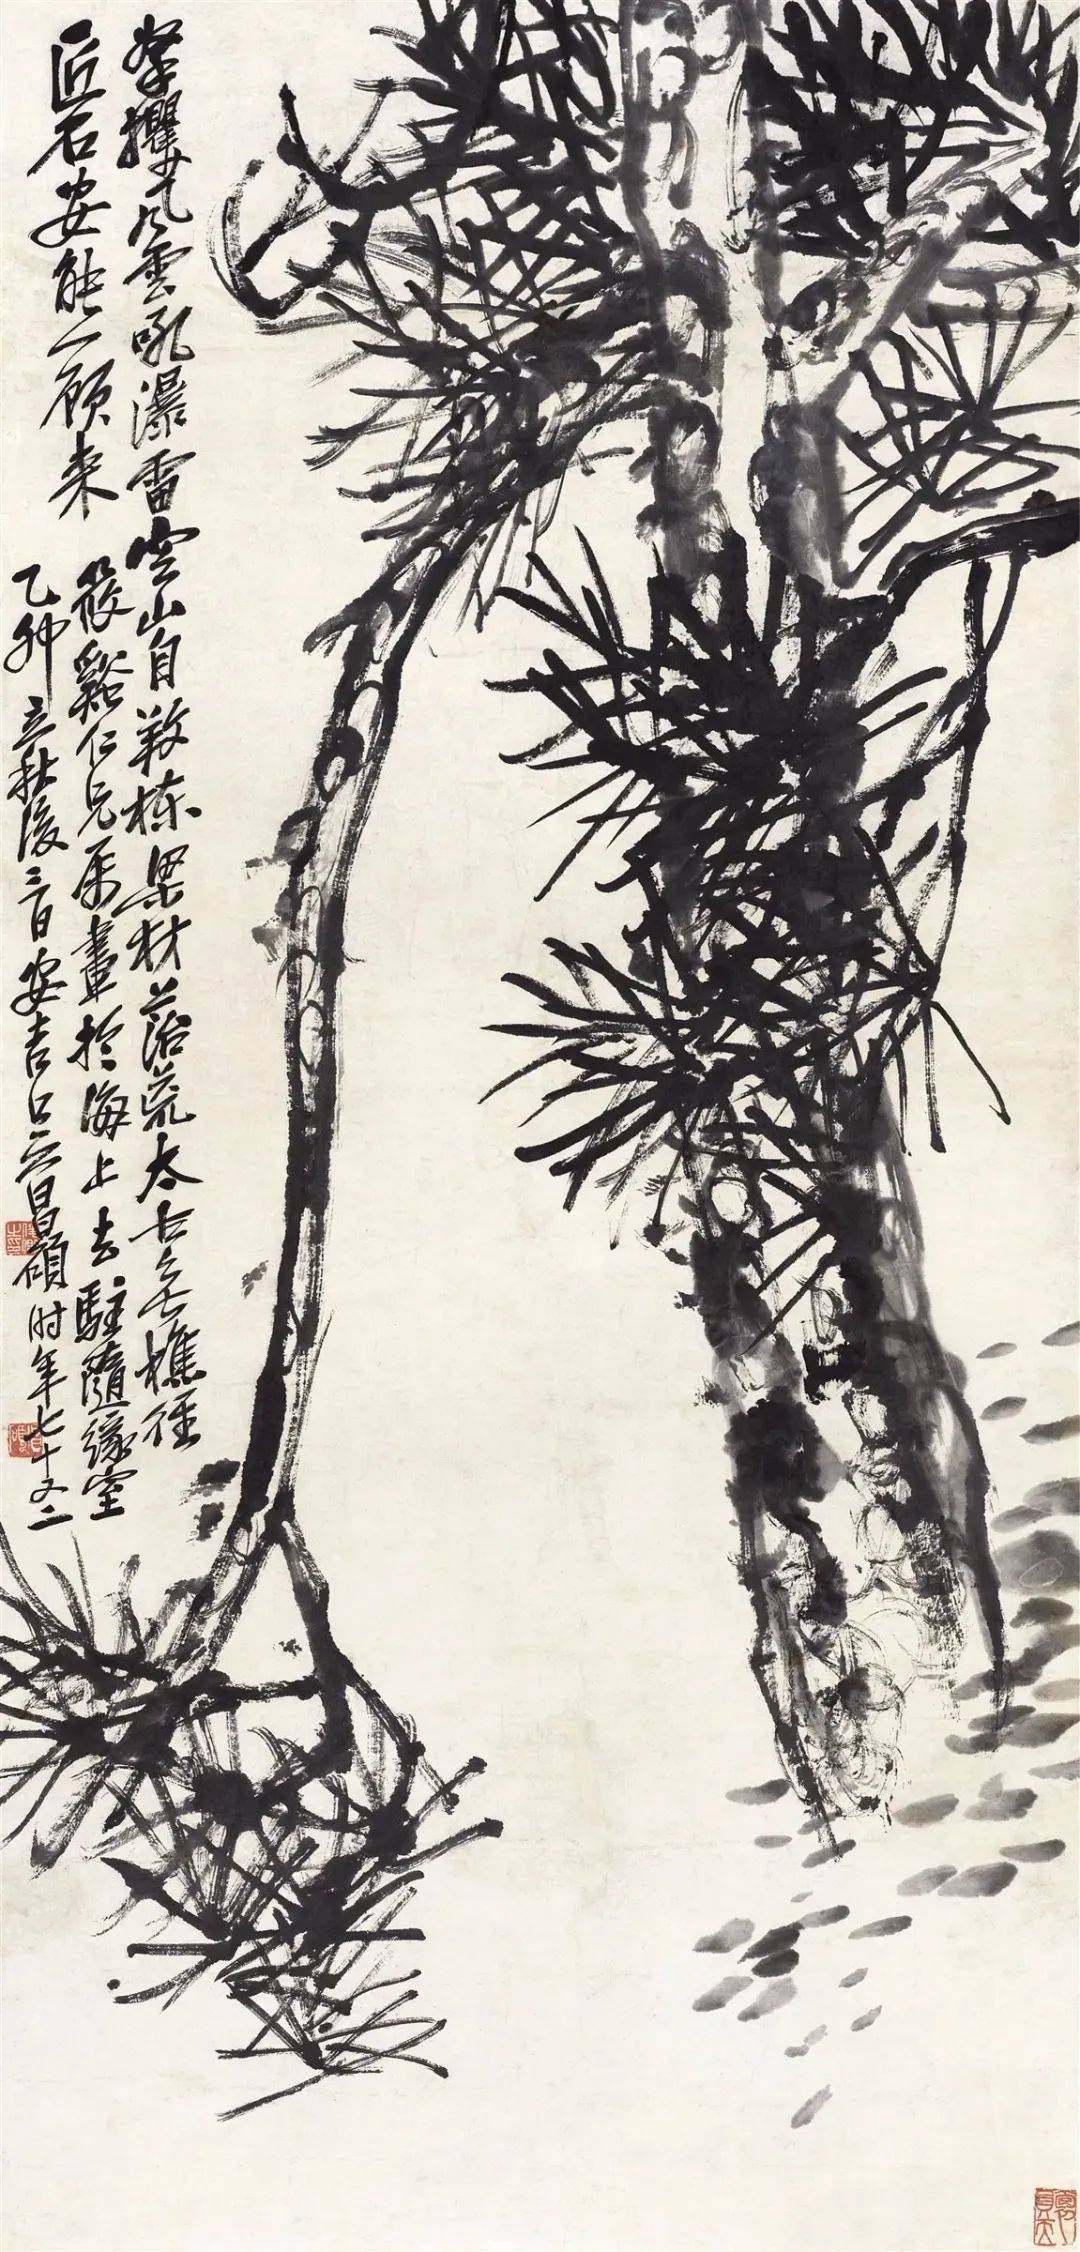 拏攫风雲吼瀑雷空山自養棟梁材落荒太古無樵徑
匠石安能一顾来
筱谿仁兄属畫於海上去駐隨緣室
乙卯立秋後三日安吉吴昌碩时年七十又二